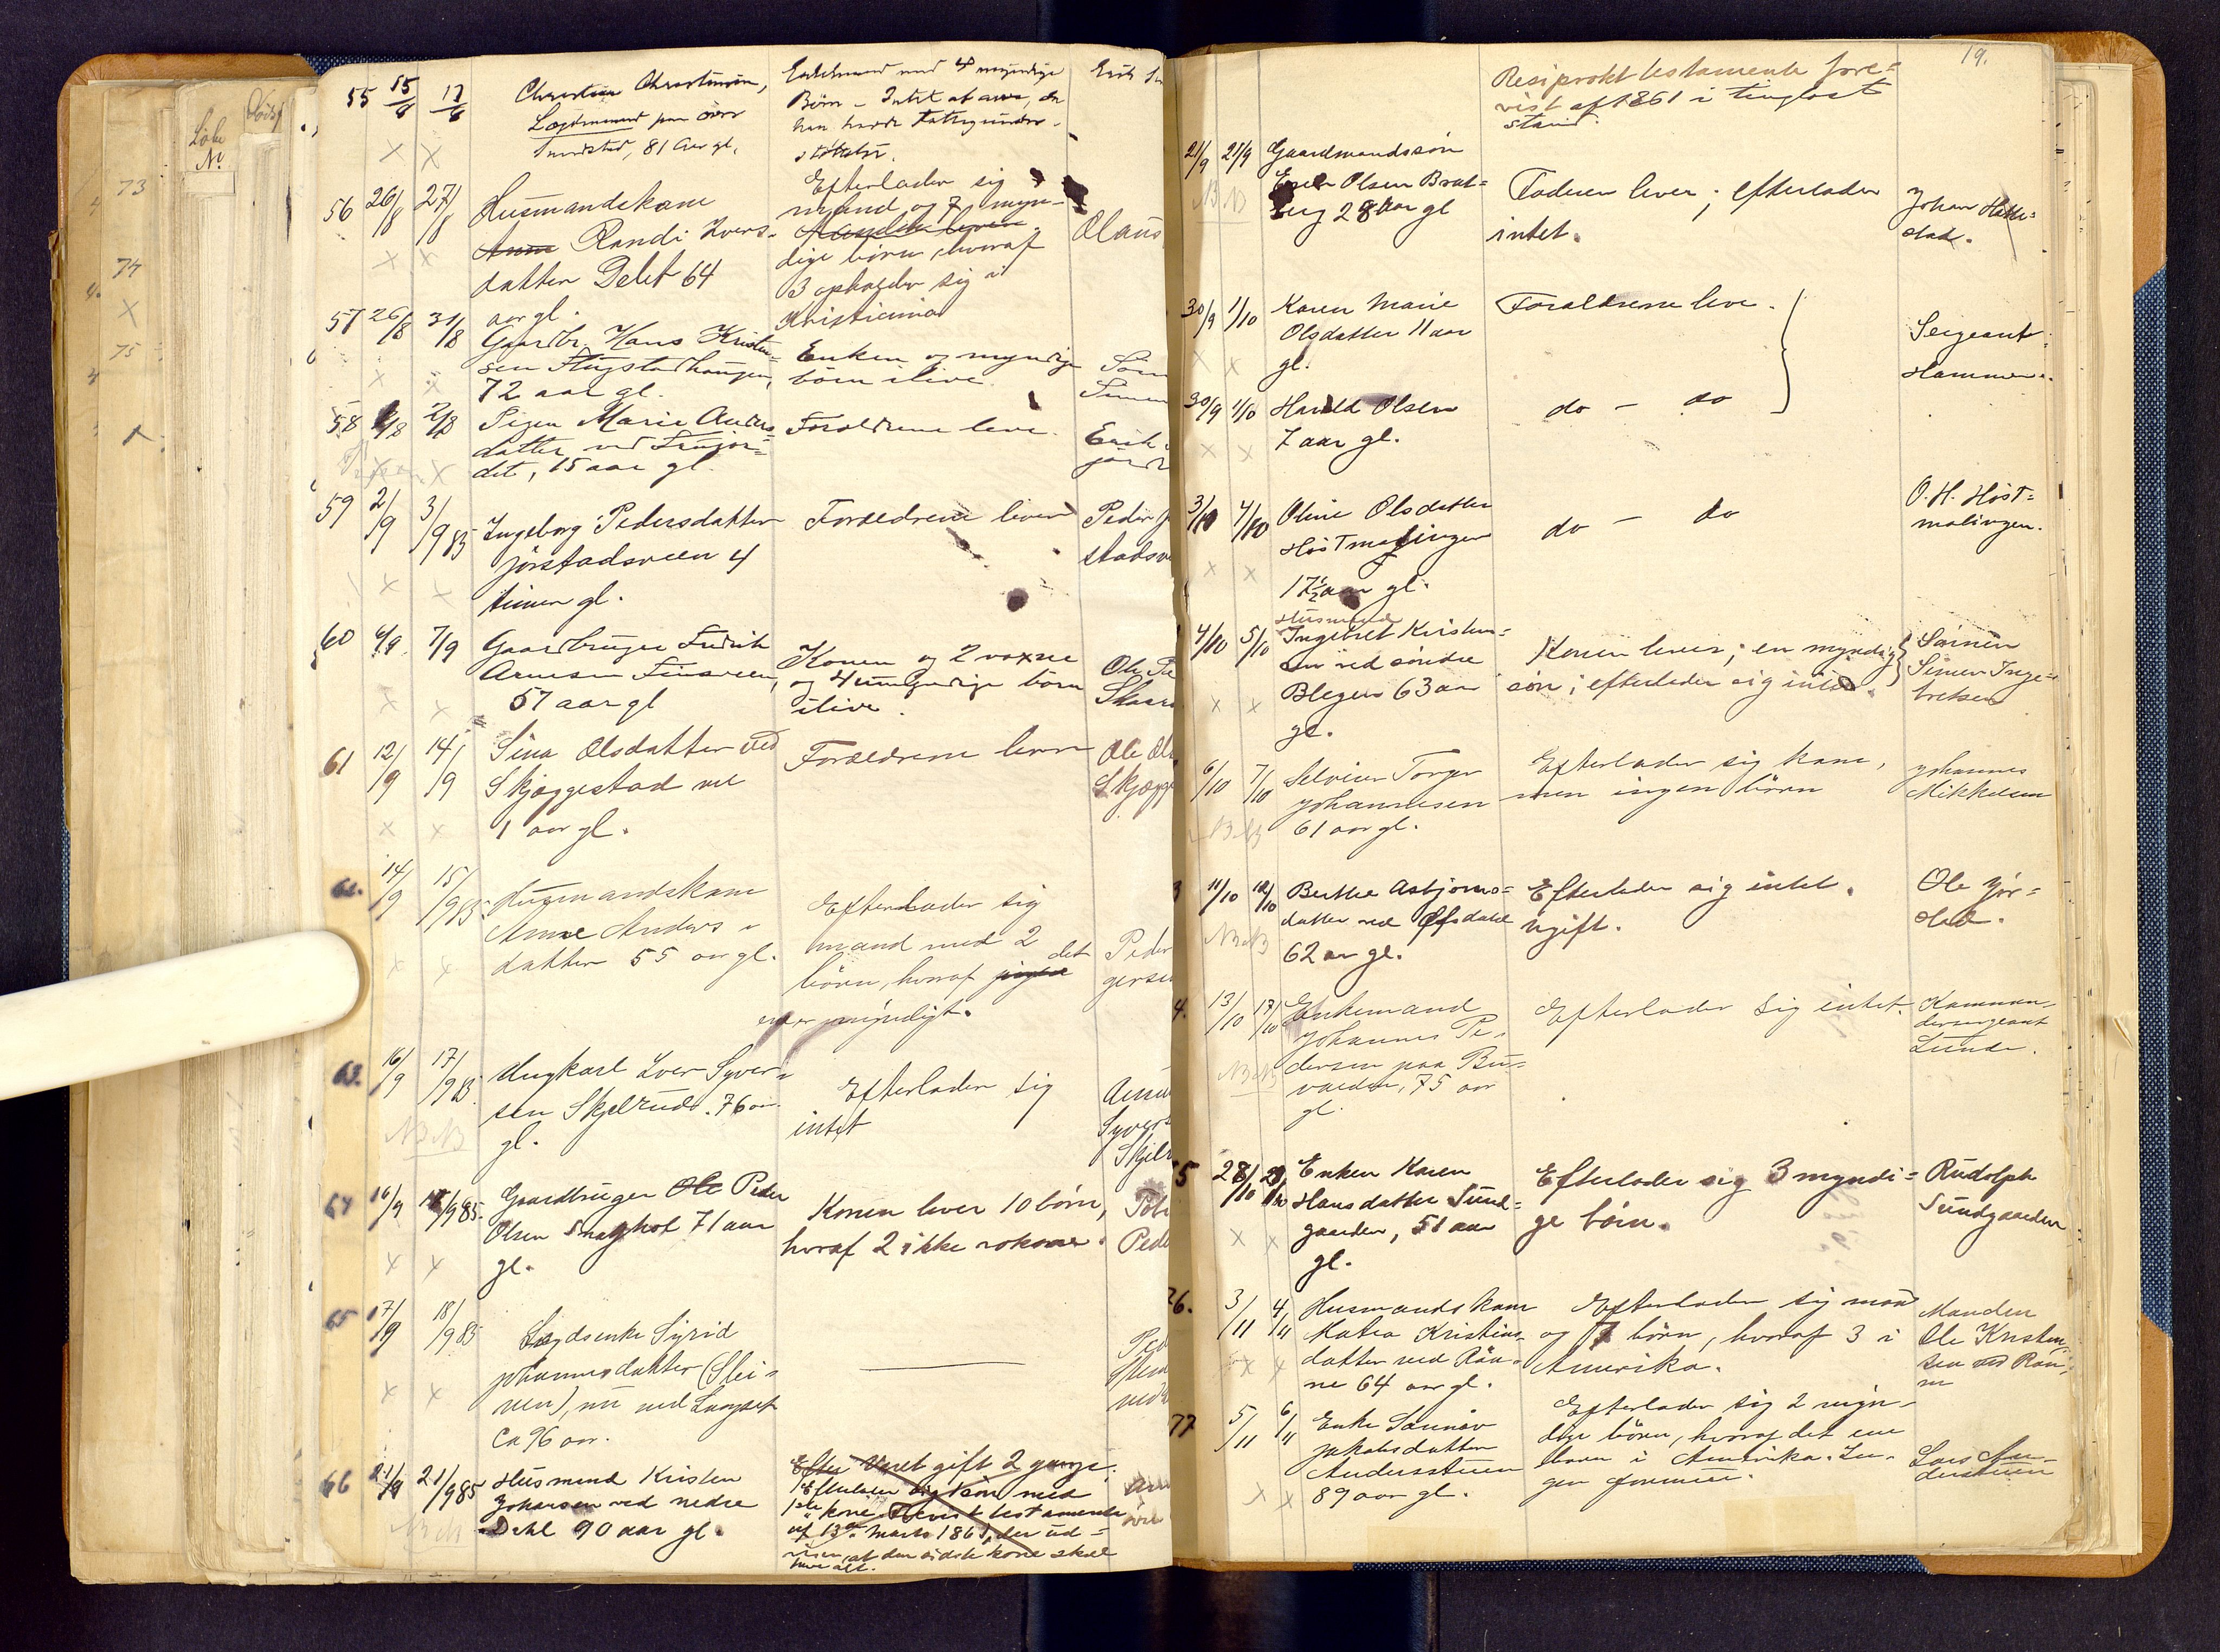 55 15/8 17/8 Christian Christensen,
Lægdsmand paa øvre
81 Aar gl.
Enkemand med 4 myndige
Børn - Intet at arve, da
han havde Fattigunder-
støttelse.
56 26/8 27/8 Husmandskone
Randi Ivers-
datter Delet 64
aar gl.
Efterlader sig
mand og 7 myn-
dige børn, hvoraf
3 opholder sig i
Kristiania
Olaus
57 26/8 31/8 Gaardbr. Hans Kristen-
sen Flugstadhaugen,
72 aar gl.
Enken og myndige
børn ilive.
Søn
Simen
58 2/8 Pigen Marie Anders-
datter ved
det, 15 aar gl.
Forældrene leve.
Erik
59 2/9 3/9 85 Ingeborg Pedersdatter
Jørstadsveen 4
timer gl.
Forældrene lever
Peder
stadsv
60 6/9 7/9 Gaardbruger Fredrik
Arnesen Finsveen,
57 aar gl
Konen og 2 voxne
og 4 umyndige børn
ilive.
Ole Pe
61 12/9 14/9 Sina Olsdatter ved
Skjæggestad
1 aar gl.
Forældrene lever
Ole Ol
Skjægge
62. 14/9 15/9 85 Husmandskone
Anne Anders-
datter 55 aar gl.
Efterlader sig
mand med 2 det
børn, hvoraf
myndigt.
Peder
gersen
63. 16/9 17/9 85. Ungkarl Iver Syver-
sen Skjelrud. 76 aar
gl.
Efterlader sig
intet
Syvers
Skjelr
64 16/9 /9 85. Gaardbruger Ole Peder
Olsen 71 aar
gl.
Konen lever 10 børn,
hvoraf 2 ikke voksne.
Pede
65 17/9 18/9 85 Lægdsenke Sigrid
Johannesdatter (Slei-
veen), nu ved
Ca 96 aar.
66 21/9 21/9 85 Husmand Kristen
Johansen ved nedre
Dahl 90 aar gl.
Efter Været gift 2 gange.
Efterlader sig børn med
1ste kone. Forevist testamente
af 13de Marts 1861, der ud-
viser, at den sidste kone skal
have alt.
19.
Resiprokt testamente fore-
vist af 1861 i tinglæst
stand.
21/9 21/9 Gaardmandssøn
Olsen Brat-
berg 28 aar gl
Faderen lever; efterlader
intet.
Johan Hatte-
stad.
30/9 1/10 Karen Marie
Olsdatter 11 aar
gl.
Forældrene leve.
Sergeant
Hammer.
30/9 1/10 Harald Olsen
7 aar gl.
do - do
3/10 4/10 Oline Olsdatter
Høstmælingen
17½ aar gl.
do - do
O. H. Høst-
mælingen.
Husmand
4/10 5/10 Ingebret Kristen-
sen ved søndre
Blegen 63 aar
gl.
Konen lever; en myndig
søn; efterlader sig intet.
Sønnen
Simen Inge-
bretsen
6/10 7/10 Selveier Torger
Johannesen
61 aar gl.
Efterlader sig kone,
men ingen børn
Johannes
Mikkelsen
11/10 12/10 Berthe Asbjørns-
datter ved Ofsdahl
62 aar gl.
Efterlader sig intet.
ugift.
Ole Jør-
stad.
4. 13/10 17/10 Enkemand
Johannes Pe-
dersen paa Bu-
vælden, 75 aar
gl.
Efterlader sig intet.
Komman-
dersergeant
Lunde.
5 28/10 29/10 Enken Karen
Hansdatter Sund-
gaarden, 51 aar
gl.
Efterlader sig 3 myndi-
ge børn.
Rudolph
Sundgaarden
76. 3/11 4/11 Husmandskone
Mathea Kristians-
datter ved Røn-
ne 64 aar gl.
Efterlader sig mand
og 7 børn, hvoraf 3 i
Amerika.
Manden
Ole Kristen-
sen ved Røn-
ne
77 5/11 6/11 Enke Sønnøv
Jakobsdatter
Anderstuen
89 aar gl.
Efterlader sig 2 myn-
dige børn, hvoraf det ene
barn i Amerika. In-
gen formue.
Lars An-
derstuen